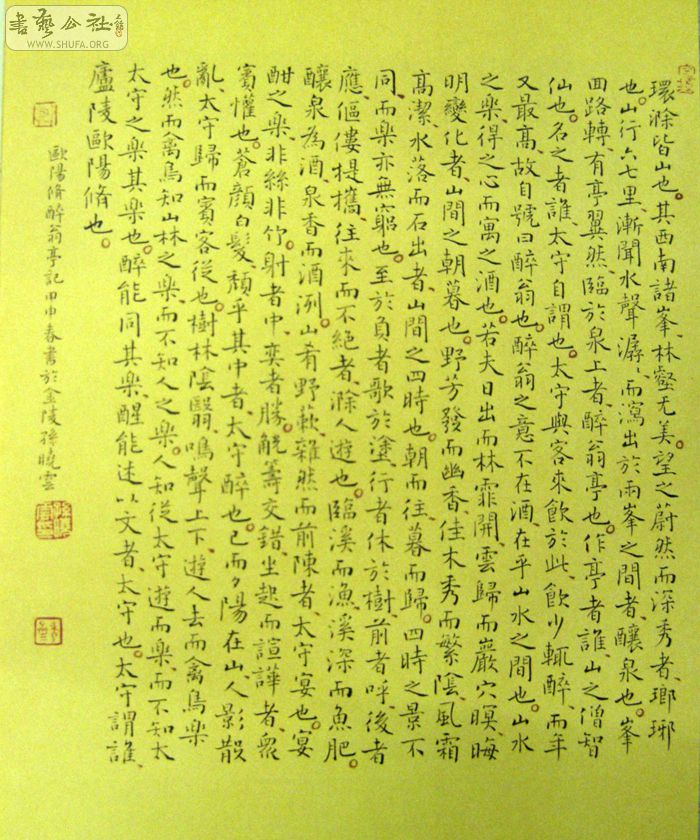 環滁皆山也。其西南諸峯、林壑尤美。望之蔚然而深秀者、瑯琊
也。山行六七里、漸聞水聲潺〻而瀉出於兩峯之間者、釀泉也。峯
回路轉、有亭翼然、臨於泉上者、醉翁亭也。作亭者誰、山之僧智
仙也。名之者誰、太守自謂也。太守與客來飲於此、飲少輒醉、而年
又最高、故自號曰醉翁也。醉翁之意不在酒、在乎山水之間也。山水
之樂、得之心而寓之酒也。若夫日出而林霏開、雲歸而巖穴暝、晦
明變化者、山間之朝暮也。野芳發而幽香、佳木秀而繁陰、風霜
高潔、水落而石出者、山間之四時也。朝而往、暮而歸。四時之景不
同、而樂亦無窮也。至於負者歌於塗、行者休於樹、前者呼、後者
應、傴僂提攜、往來而不絕者、滁人遊也。臨溪而漁、溪深而魚肥。
釀泉為酒、泉香而酒洌、山肴野蔌、雜然而前陳者、太守宴也。宴
酣之樂、非絲非竹、射者中、奕者勝、觥籌交錯、坐起而諠譁者、衆
賓懽也。蒼顏白髮、頹乎其中者、太守醉也。已而夕陽在山、人影散
亂、太守歸而賓客從也。樹林陰翳、鳴聲上下、遊人去而禽鳥樂
也。然而禽鳥知山林之樂、而不知人之樂。人知從太守遊而樂、而不知太
太守之樂其樂也。醉能同其樂、醒能述以文者、太守也。太守謂誰、
廬陵歐陽脩也。
歐陽脩醉翁亭記甲申春書於金陵孫曉雲
書藝公社
WWW.SHUFA.ORG